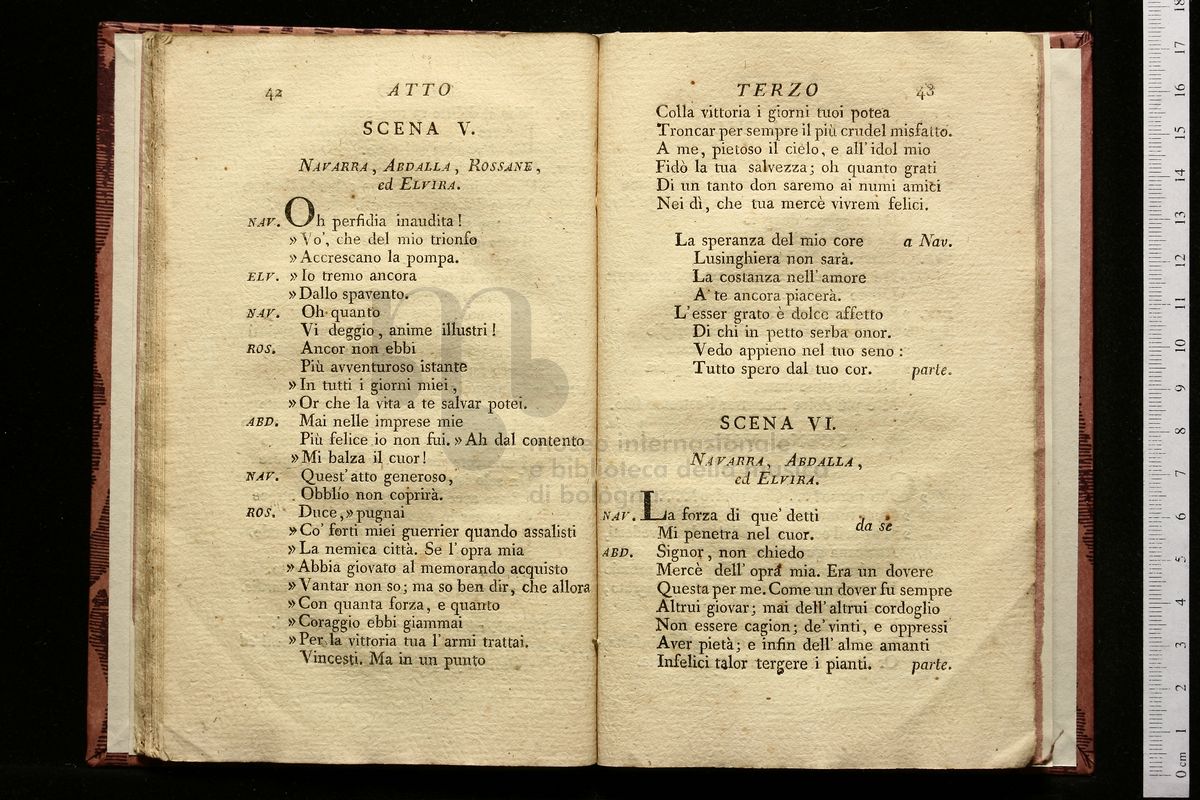 42 ATTO
SCENA V.
NAVARRA, ABDALLA, ROSSANE,
ed ELVIRA.
NAV. Oh perfidia inaudita!
» Vo', che del mio trionfo
» Accrescano la pompa.
ELV. » Io tremo ancora
» Dallo spavento.
NAV. Oh quanto
Vi deggio, anime illustri!
ROS. Ancor non ebbi
Più avventuroso istante
» In tutti i giorni miei,
» Or che la vita a te salvar potei.
ABD. Mai nelle imprese mie
Più felice io non fui. » Ah dal contento
» Mi balza il cuor!
NAV. Quest'atto generoso,
Obblío non coprirà.
ROS. Duce, » pugnai
» Co' forti miei guerrier quando assalisti
» La nemica città. Se l'opra mia
» Abbia giovato al memorando acquisto
» Vantar non so; ma so ben dir, che allora
» Con quanta forza, e quanto
» Coraggio ebbi giammai
» Per la vittoria tua l'armi trattai.
Vincesti. Ma in un punto
TERZO 43
Colla vittoria i giorni tuoi potea
Troncar per sempre il più crudel misfatto.
A me, pietoso il cielo, e all'idol mio
Fidò la tua salvezza; oh quanto grati
Di un tanto don saremo ai numi amici
Nei dì, che tua mercè vivrem felici.
La speranza del mio core a Nav.
Lusinghiera non sarà.
La costanza nell'amore
A te ancora piacerà.
L'esser grato è dolce affetto
Di chi in petto serba onor.
Vedo appieno nel tuo seno:
Tutto spero dal tuo cor. parte.
SCENA VI.
NAVARRA, ABDALLA,
ed ELVIRA.
NAV. La forza di que' detti
Mi penetra nel cuor. da se
ABD. Signor, non chiedo
Mercè dell'opra mia. Era un dovere
Questa per me. Come un dover fu sempre
Altrui giovar; mai dell'altrui cordoglio
Non essere cagion; de' vinti, e oppressi
Aver pietà; e infin dell'alme amanti
Infelici talor tergere i pianti. parte.
museo internazionale
e biblioteca della musica
di bologna
0 cm 1 2 3 4 5 6 7 8 9 10 11 12 13 14 15 16 17 18